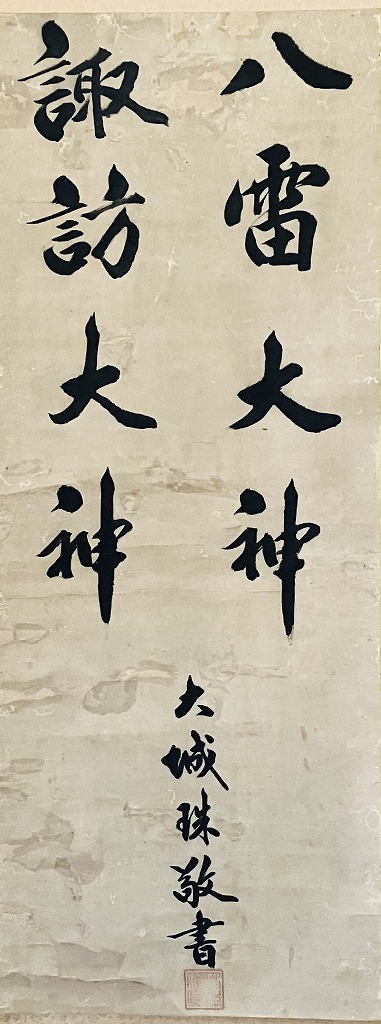 八雷大神
諏訪大神
大城珠敬書